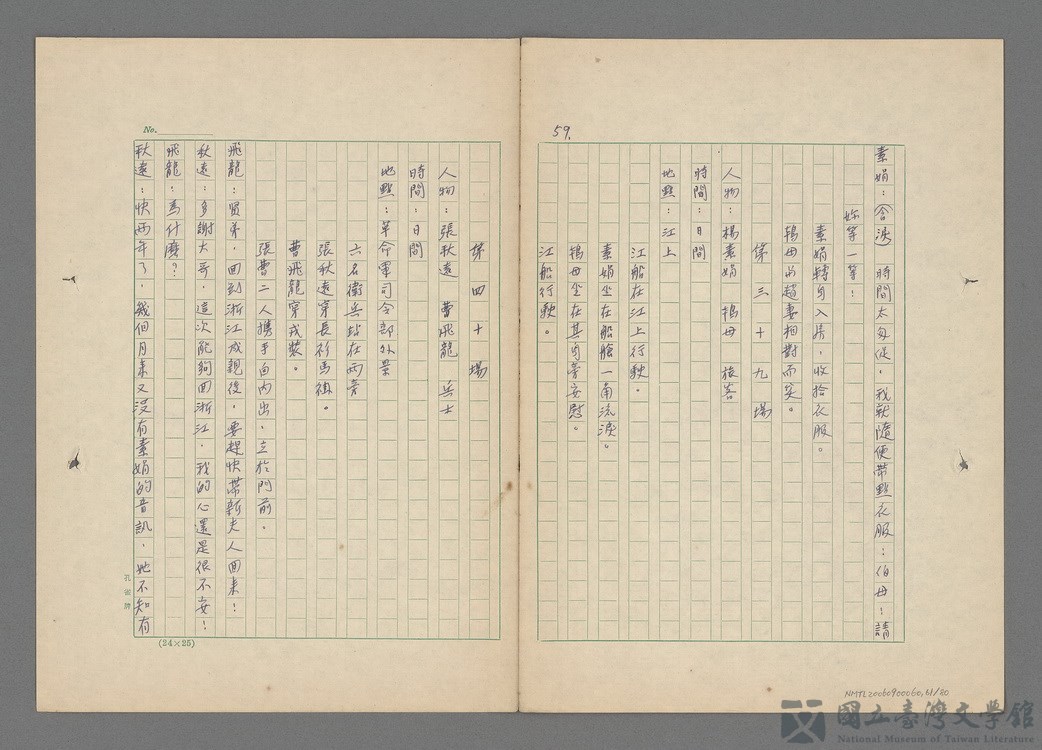 59.
素娟：(含淚)時間太匆促，我就隨便帶點衣服；伯母！請
妳等一等！
素娟轉身入房，收拾衣服。
鴇母与趙妻相對而笑。
第三十九場
人物：楊素娟　鴇母　旅客
時間：日間
地點：江上
江船在江上行駛。
素娟坐在船艙一角流淚。
鴇母坐在其身旁安慰。
江船行駛。
No.
第四十場
人物：張秋遠　曹飛龍　兵士
時間：日間
地點：革命軍司令部外景
六名衛兵站在兩旁
張秋遠穿長衫馬褂。
曹飛龍穿戎裝。
張曹二人攜手自內出，立於門前。
飛龍：賢弟，回到浙江成親後，要趕快帶新夫人回來！
秋遠：多謝大哥，這次能夠回浙江，我的心還是很不安！
飛龍：爲什麽？
秋遠：快兩年了，幾個月來又沒有素娟的音訊，她不知有
孔雀牌
(24×25)
NMTL20060900060, 61/80
國立臺灣文學館
National Museum of Taiwan Literature